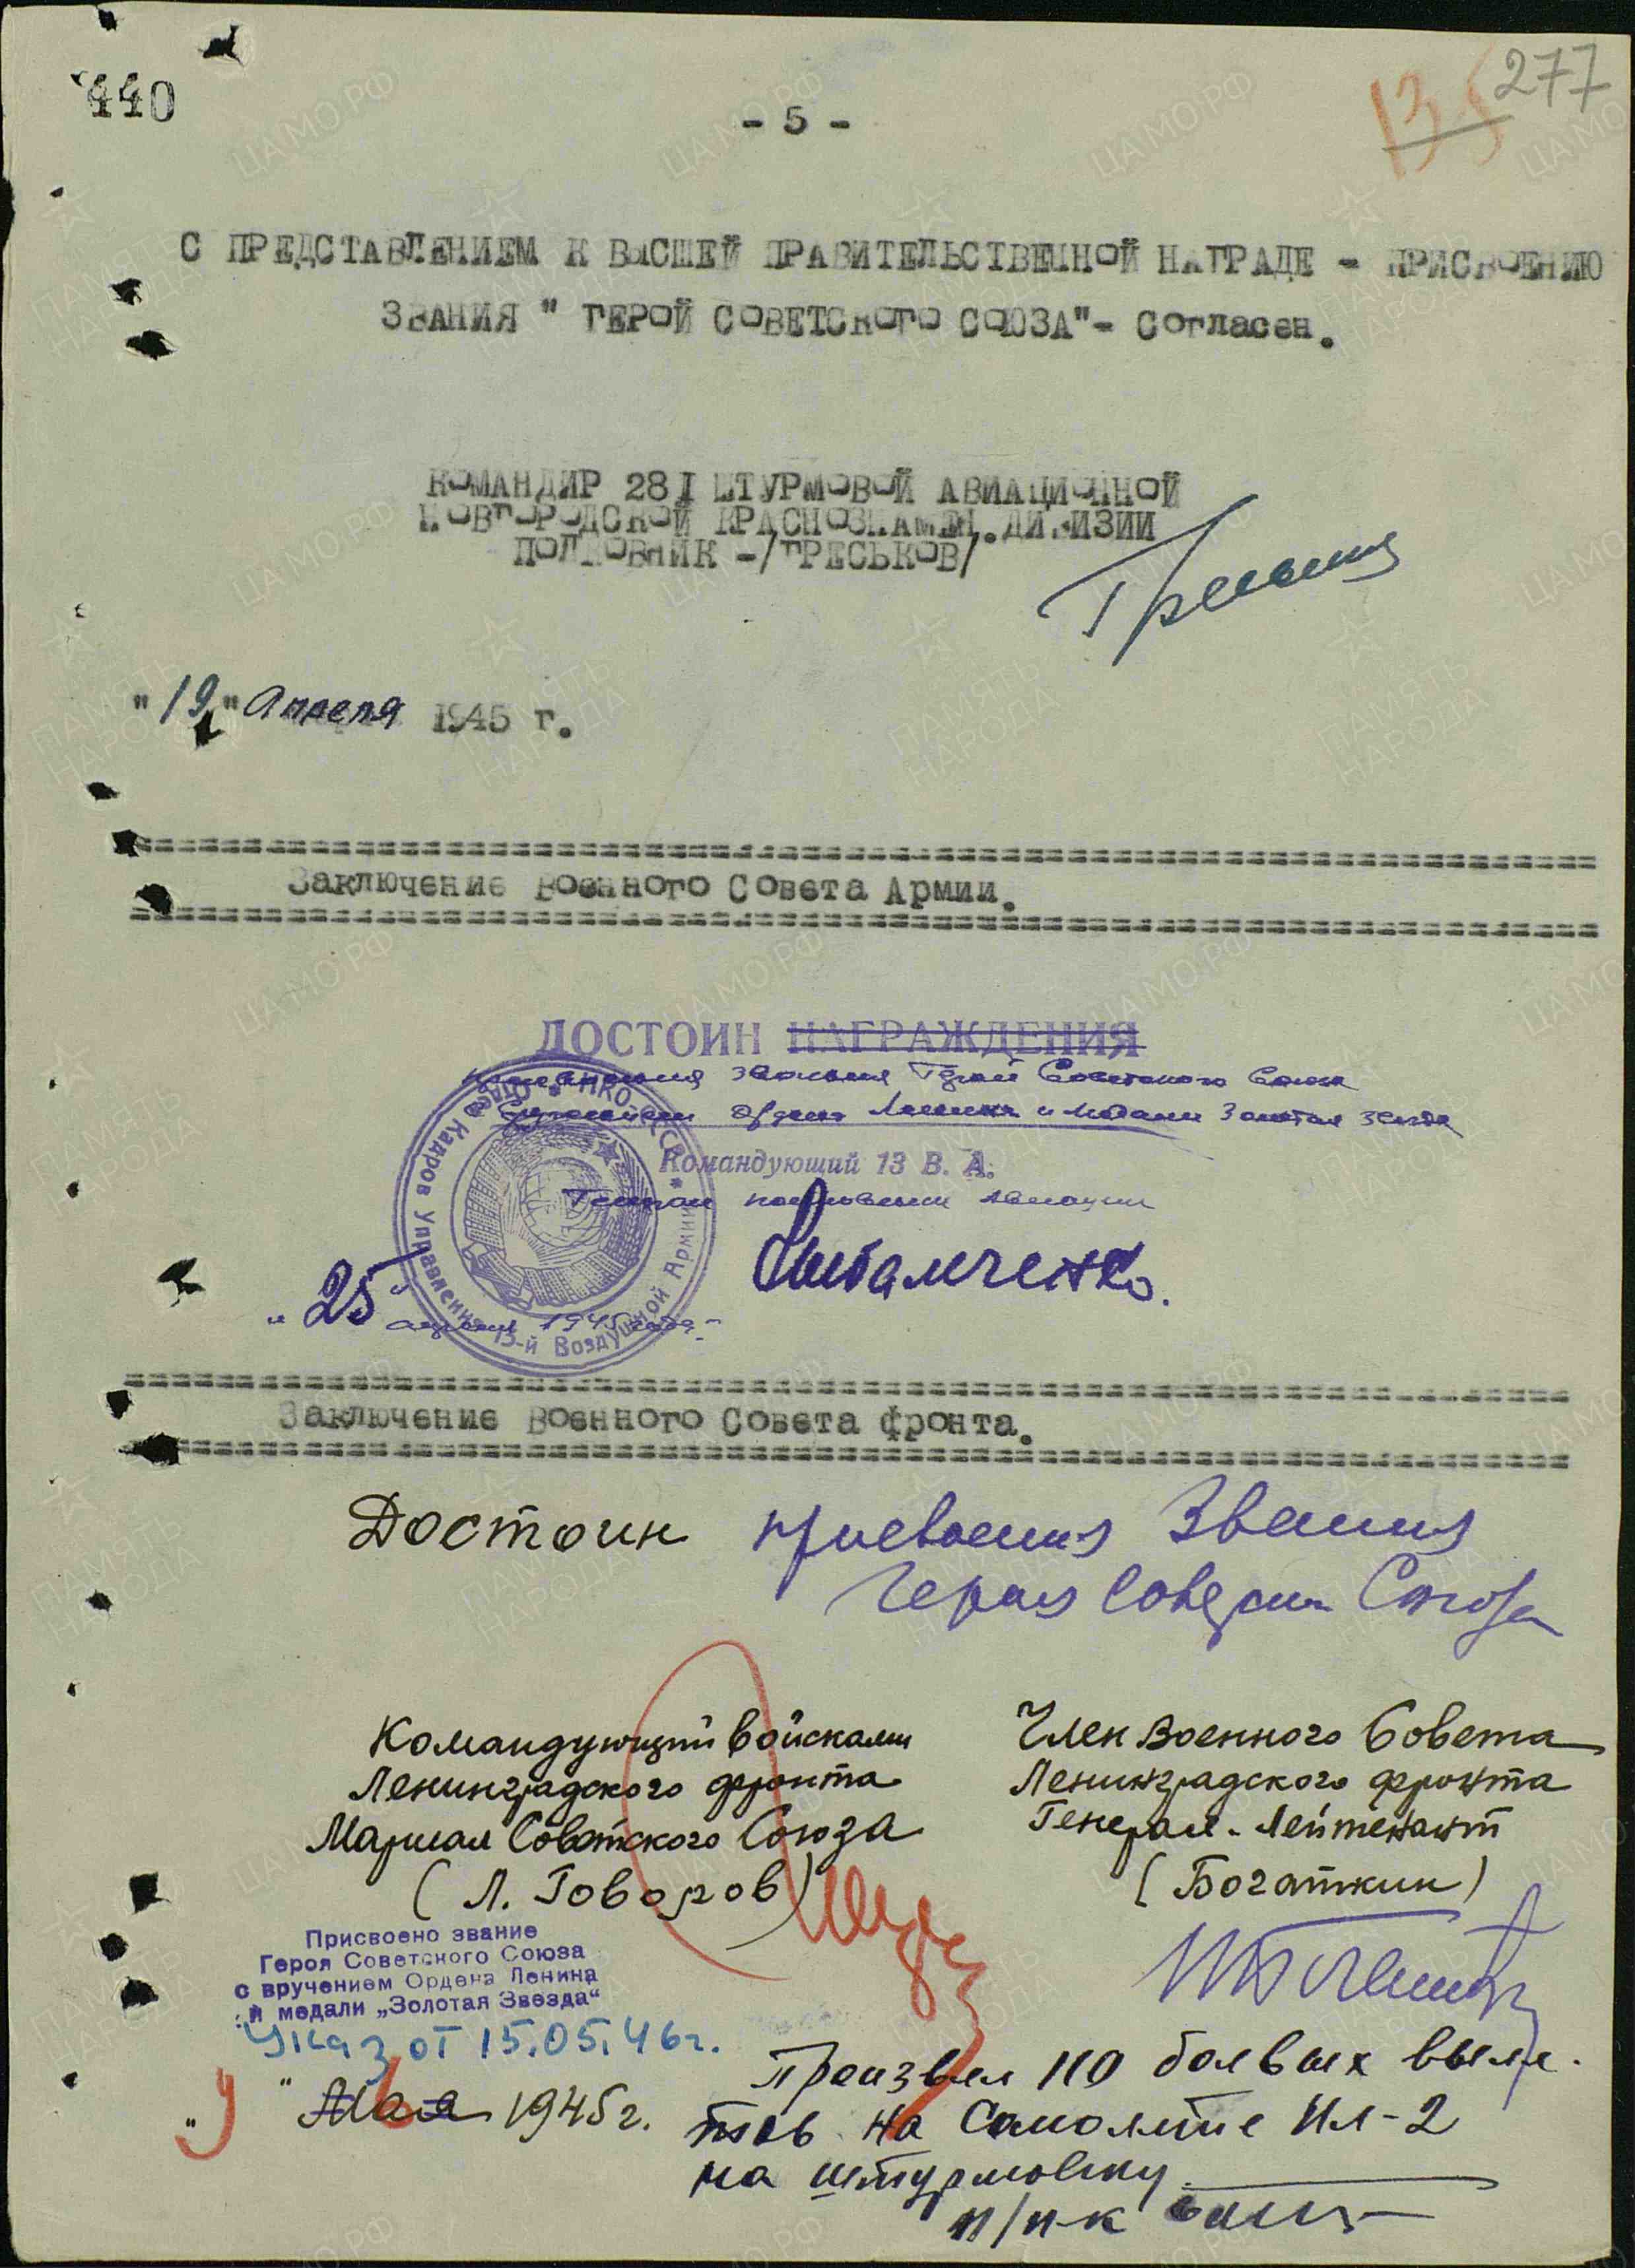 440
277
135
- 5 -
С ПРЕДСТАВЛЕНИЕМ К ВЫСШЕЙ ПРАВИТЕЛЬСТВЕННОЙ НАГРАДЕ - ПРИСВОЕНИЮ
ЗВАНИЯ " ГЕРОЙ СОВЕТСКОГО СОЮЗА"- Согласен.
КОМАНДИР 281 ШТУРМОВОЙ АВИАЦИОННОЙ
НОВГОРОДСКОЙ КРАСНОЗНАМЕН. ДИВИЗИИ
ПОЛКОВНИК -/ГРЕСЬКОВ/
"19" Апреля 1945 г.
Заключение Военного Совета Армии.
ДОСТОИН НАГРАЖДЕНИЯ
присвоения звания Герой Советского Союза
с вручением Ордена Ленина и медали Золотая звезда
Командующий 13 В. А.
Генерал полковник авиации
Рыбальченко.
"25" апреля 1945 года
Отдел Кадров Управления 13-й Воздушной Армии * НКО СССР *
Заключение Военного Совета фронта.
Достоин присвоения Звания
Героя Советского Союза
Командующий войсками
Ленинградского фронта
Маршал Советского Союза
(Л. Говоров)
Член Военного Совета
Ленинградского фронта
Генерал-Лейтенант
(Богаткин)
Присвоено звание
Героя Советского Союза
с вручением Ордена Ленина
и медали „Золотая Звезда“
Указ от 15.05.46г.
" " Мая 1945г.
Произвел 110 боевых выле-
тов на самолете Ил-2
на штурмовку.
п/п-к
ЦА МО РФ
ПАМЯТЬ НАРОДА